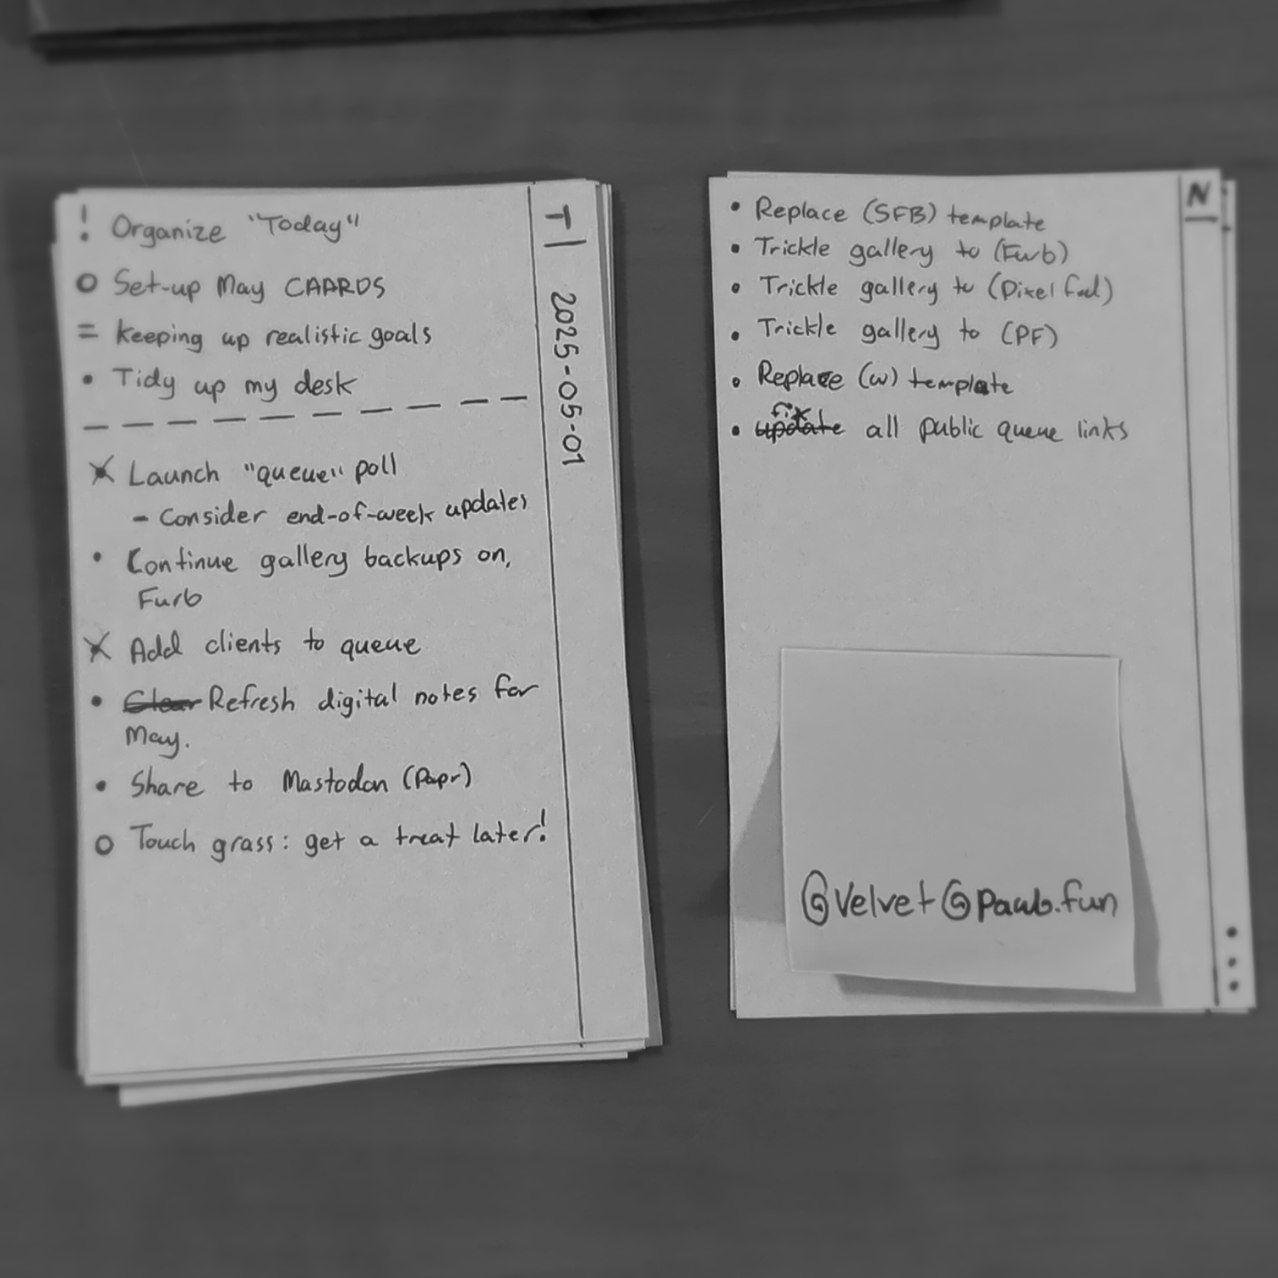 ! Organize "Today"
O Set-up May CAARDS
= keeping up realistic goals
• Tidy up my desk
X Launch "queue" poll
- Consider end-of-week updates
• Continue gallery backups on,
Furb
X Add clients to queue
• Clear Refresh digital notes for
May.
• Share to Mastodon (Papr)
O Touch grass: get a treat later!
T|
2025-05-01
N
• Replace (SFB) template
• Trickle gallery to (Furb)
• Trickle gallery to (Pixelfed)
• Trickle gallery to (PF)
• Replace (w) template
fix
• update all public queue links
@Velvet@pawb.fun